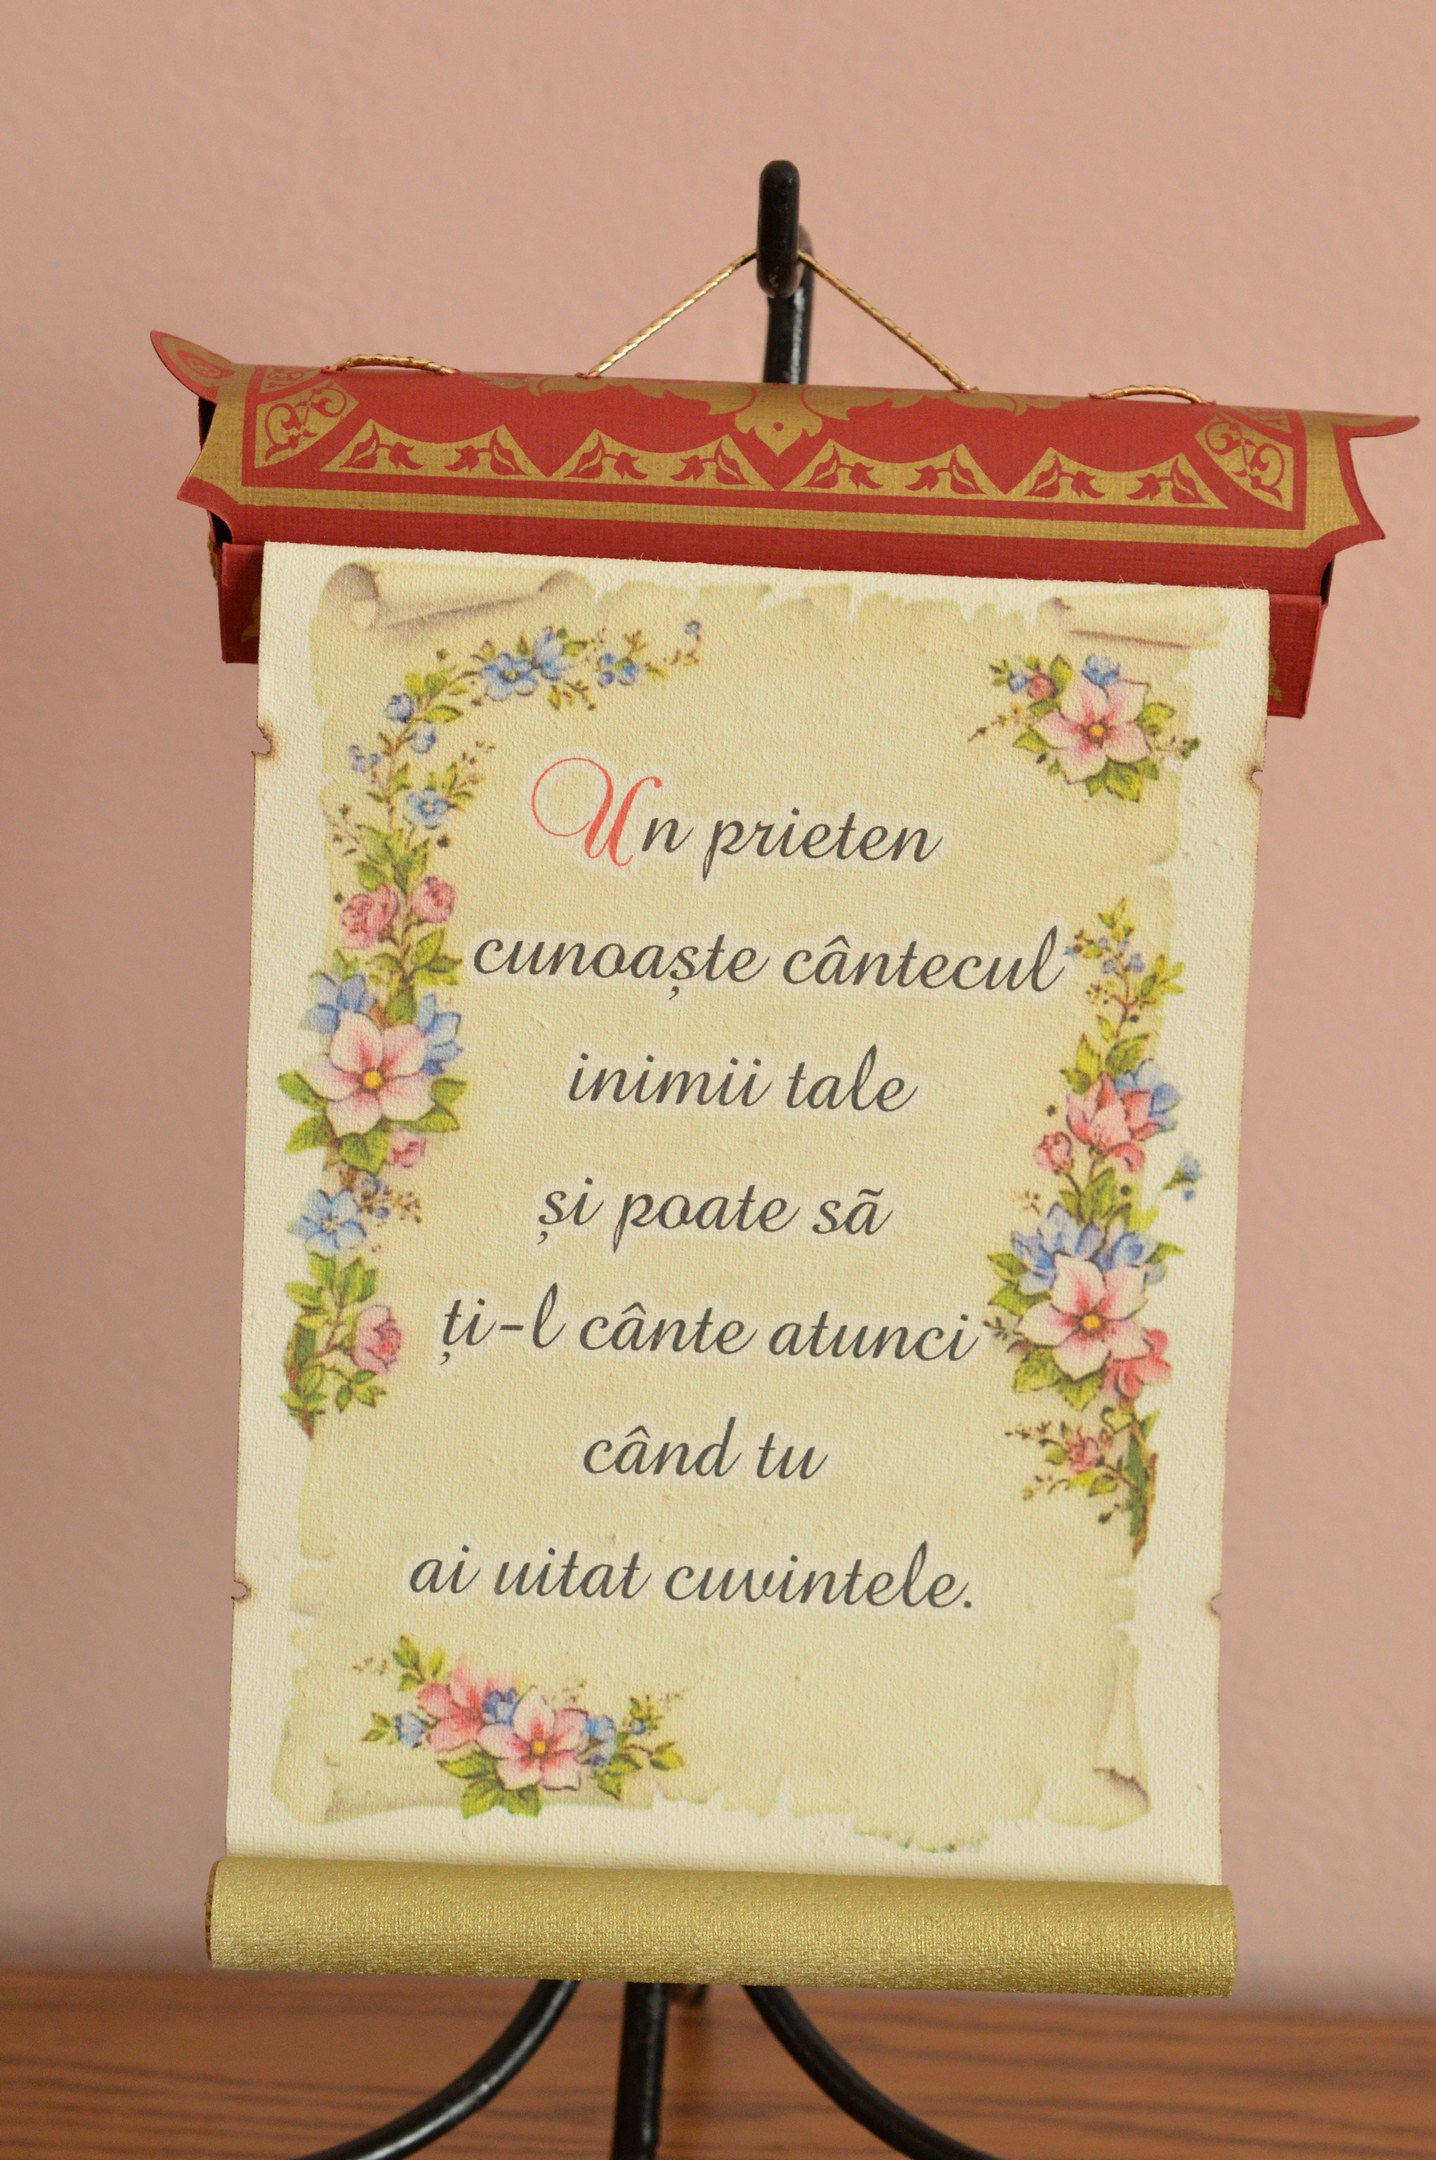 Un prieten
cunoaște cântecul
inimii tale
și poate sã
ți-l cânte atunci
când tu
ai uitat cuvintele.